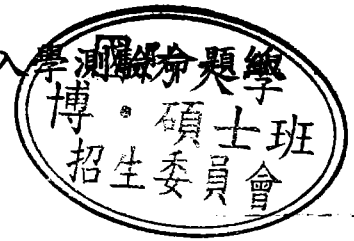 入學測驗命題
博・碩士班
招生委員會